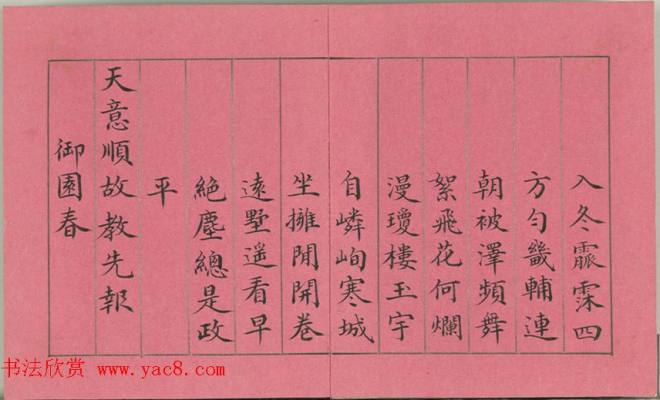 入冬霢霂四
方勻畿輔連
朝被澤頻舞
絮飛花何爛
漫瓊樓玉宇
自嶙峋寒城
坐擁閒開卷
遠墅遥看早
絕塵總是政
平
天意順故教先報
御園春
书法欣赏 www.yac8.com